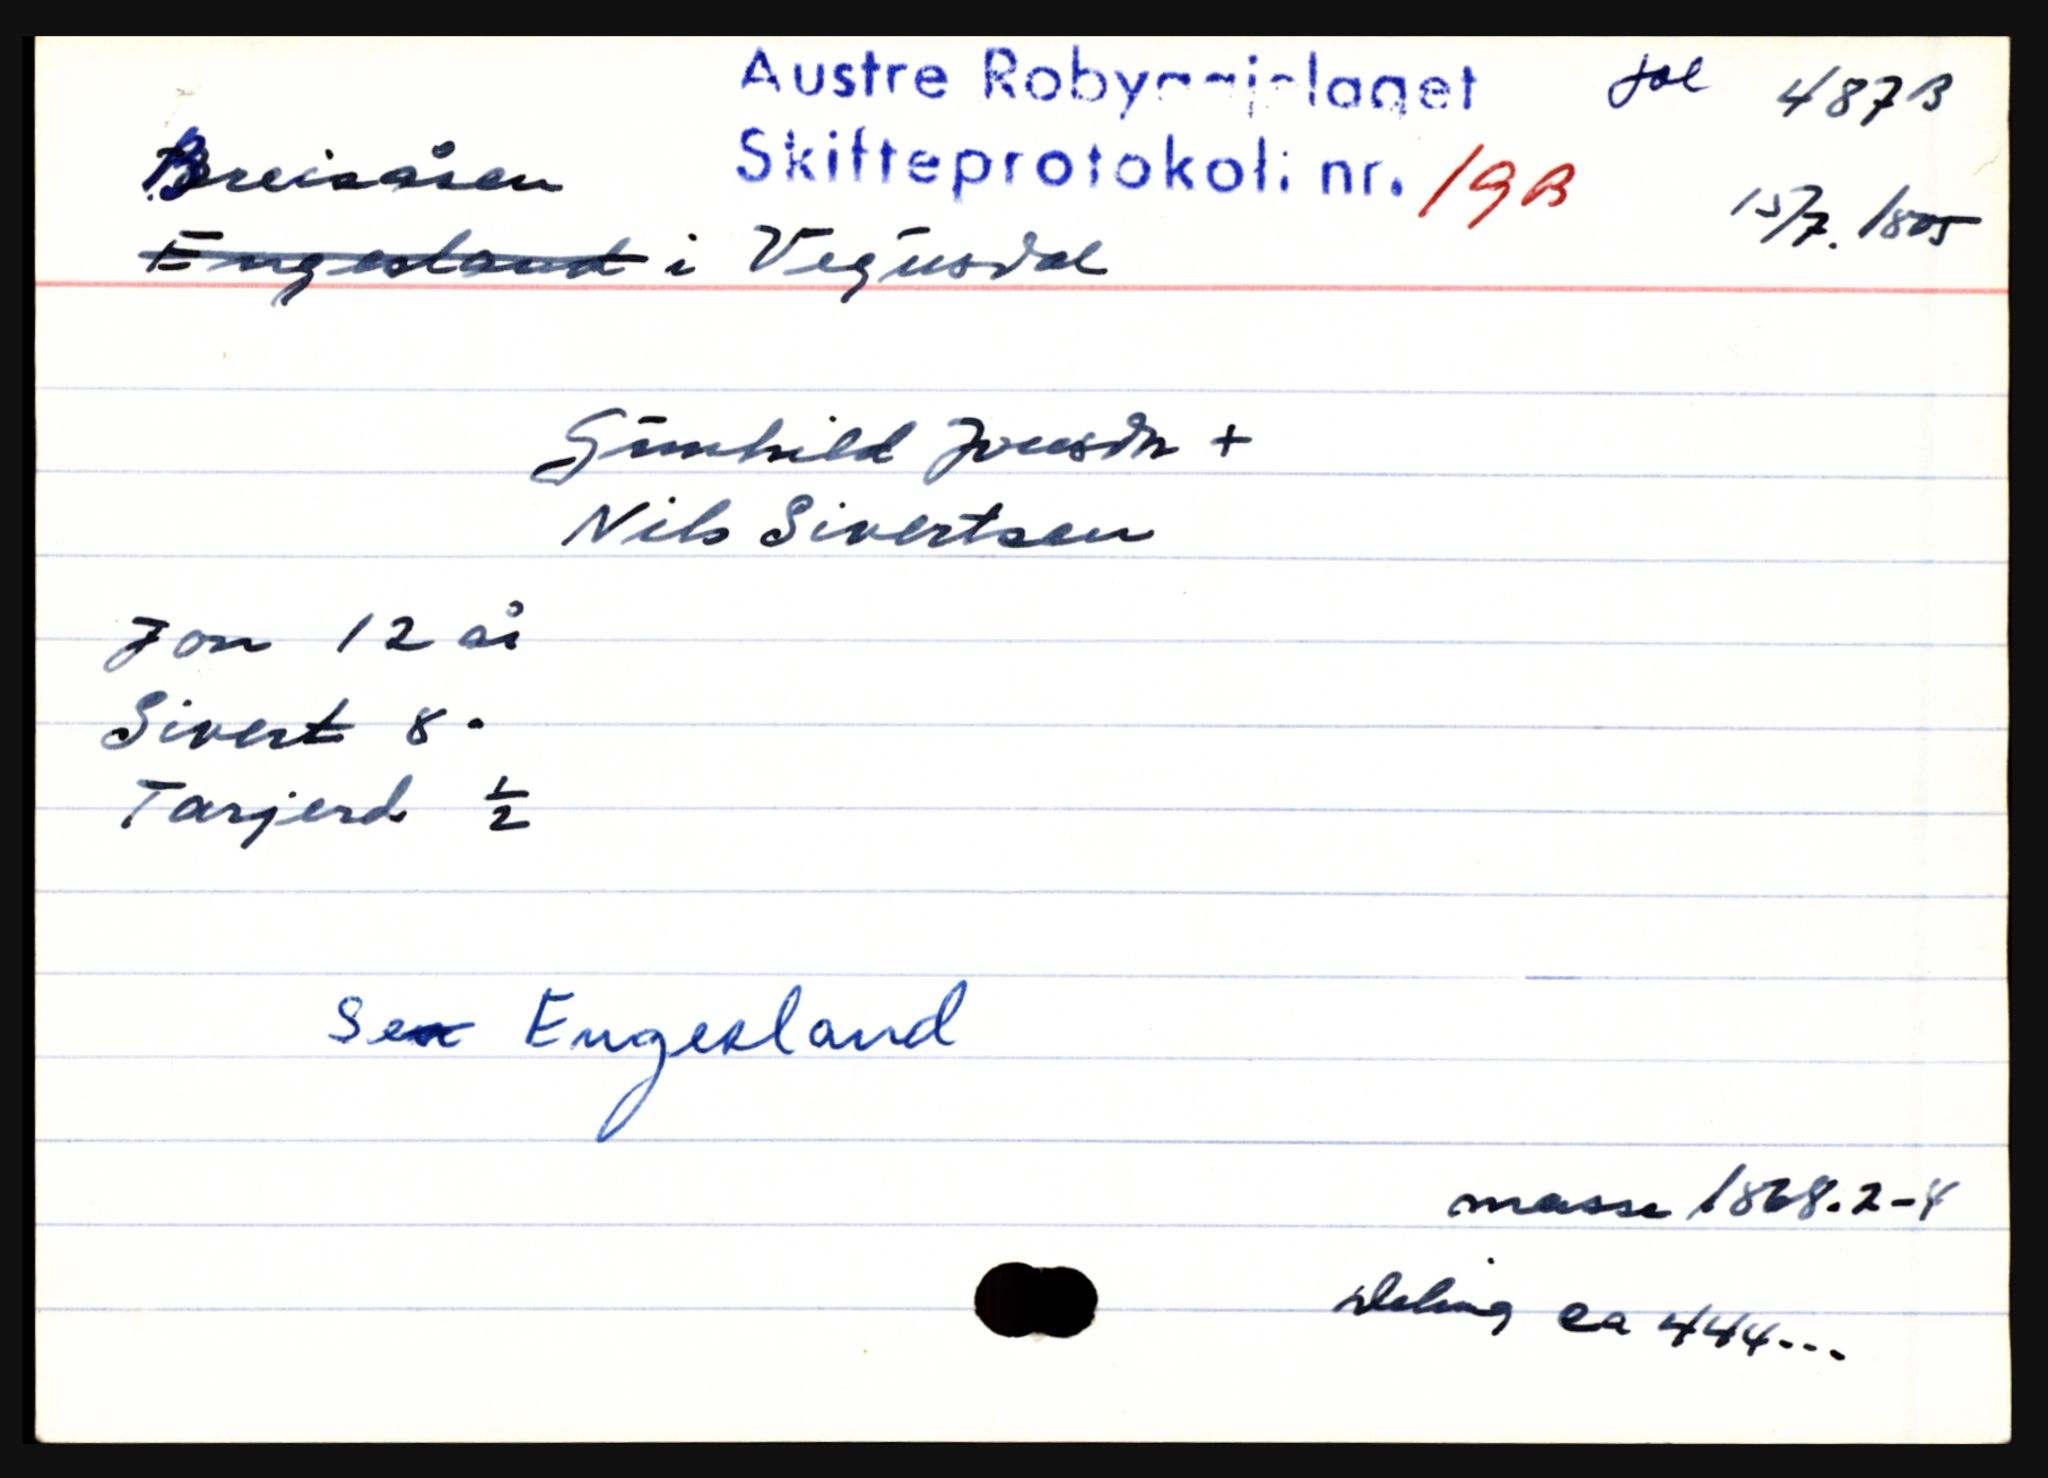 Austre Robyggjelaget fol 487B
Skifteprotokoll nr. 19B
Breisåsen 15/7. 1805
Engesland i Vegusdal
Gunhild Jonsdtr +
Nils Sivertsen
Jon 12 år
Sivert 8 "
Tarjerd ½
Se Engesland
masse 1868.2-4
deling ca 444...